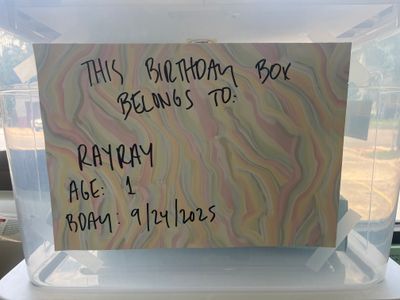 THIS BIRTHDAY BOX
BELONGS TO:
RAYRAY
AGE: 1
BDAY: 9/24/2025